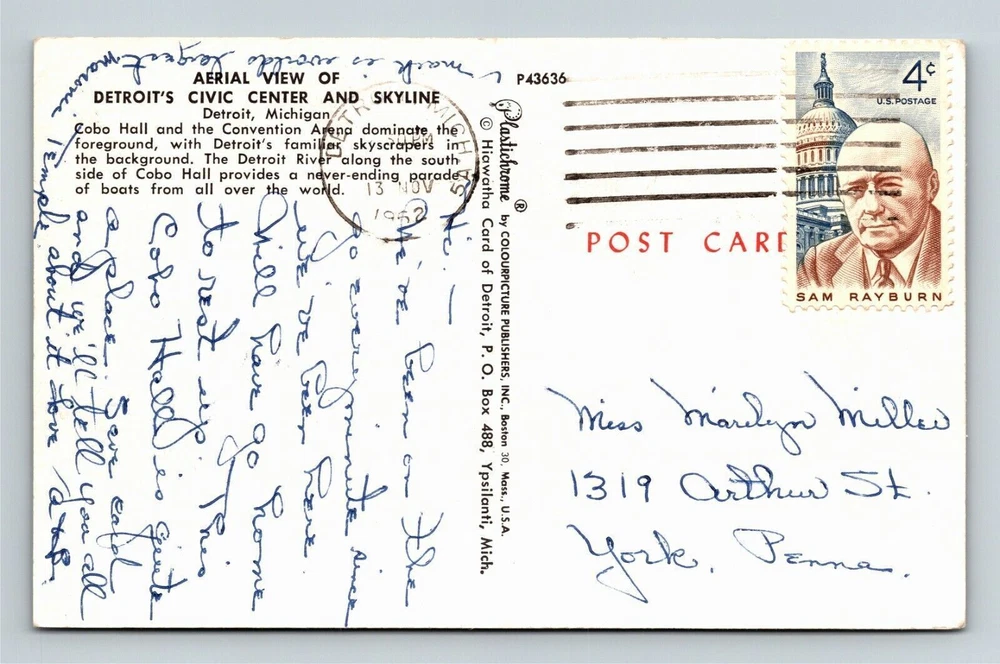 AERIAL VIEW OF
DETROIT'S CIVIC CENTER AND SKYLINE
Detroit, Michigan
Cobo Hall and the Convention Arena dominate the
foreground, with Detroit's familiar skyscrapers in
the background. The Detroit River along the south
side of Cobo Hall provides a never-ending parade
of boats from all over the world.
Hi —
We've been on the
go every minute since
we've been here.
Will have go home
to rest up. This
Cobo Hall is quite
a place. Save card
and we'll tell you all
about it. Love
mark is worlds largest masonic
Temple
P43636
Plastichrome ® by COLOURPICTURE PUBLISHERS, INC., Boston 30, Mass., U.S.A.
© Hiawatha Card of Detroit, P. O. Box 488, Ypsilanti, Mich.
DETROIT MICH
5A
13 NOV
1962
POST CARD
4¢
U.S. POSTAGE
SAM RAYBURN
Miss Marilyn Miller
1319 Arthur St.
York, Penna.